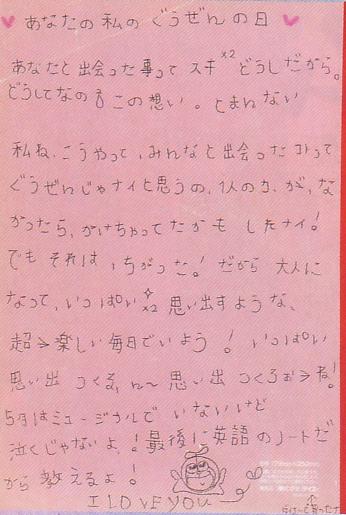 あなたの私のぐうぜんの日
あなたと出会った事って スキ×2 どうしだから。
どうしてなの この想い。とまんない
私ね、こうやって、みんなと出会ったコトって
ぐうぜんじゃナイと思うの、1人の力、が、な
かったら、かけちゃってたかも したナイ!
でも それは 、ちがった! だから 大人に
なって、いっぱい×2 思い出すような、
超→楽しい毎日でいよう! いっぱい
思い出 つくる, ん〜 思い出 つくろぉ→ね!
5月はミュージカルで いないけど
泣くじゃないよ!最後に英語のノートだ
から 教えるよ!
I LOVE YOU